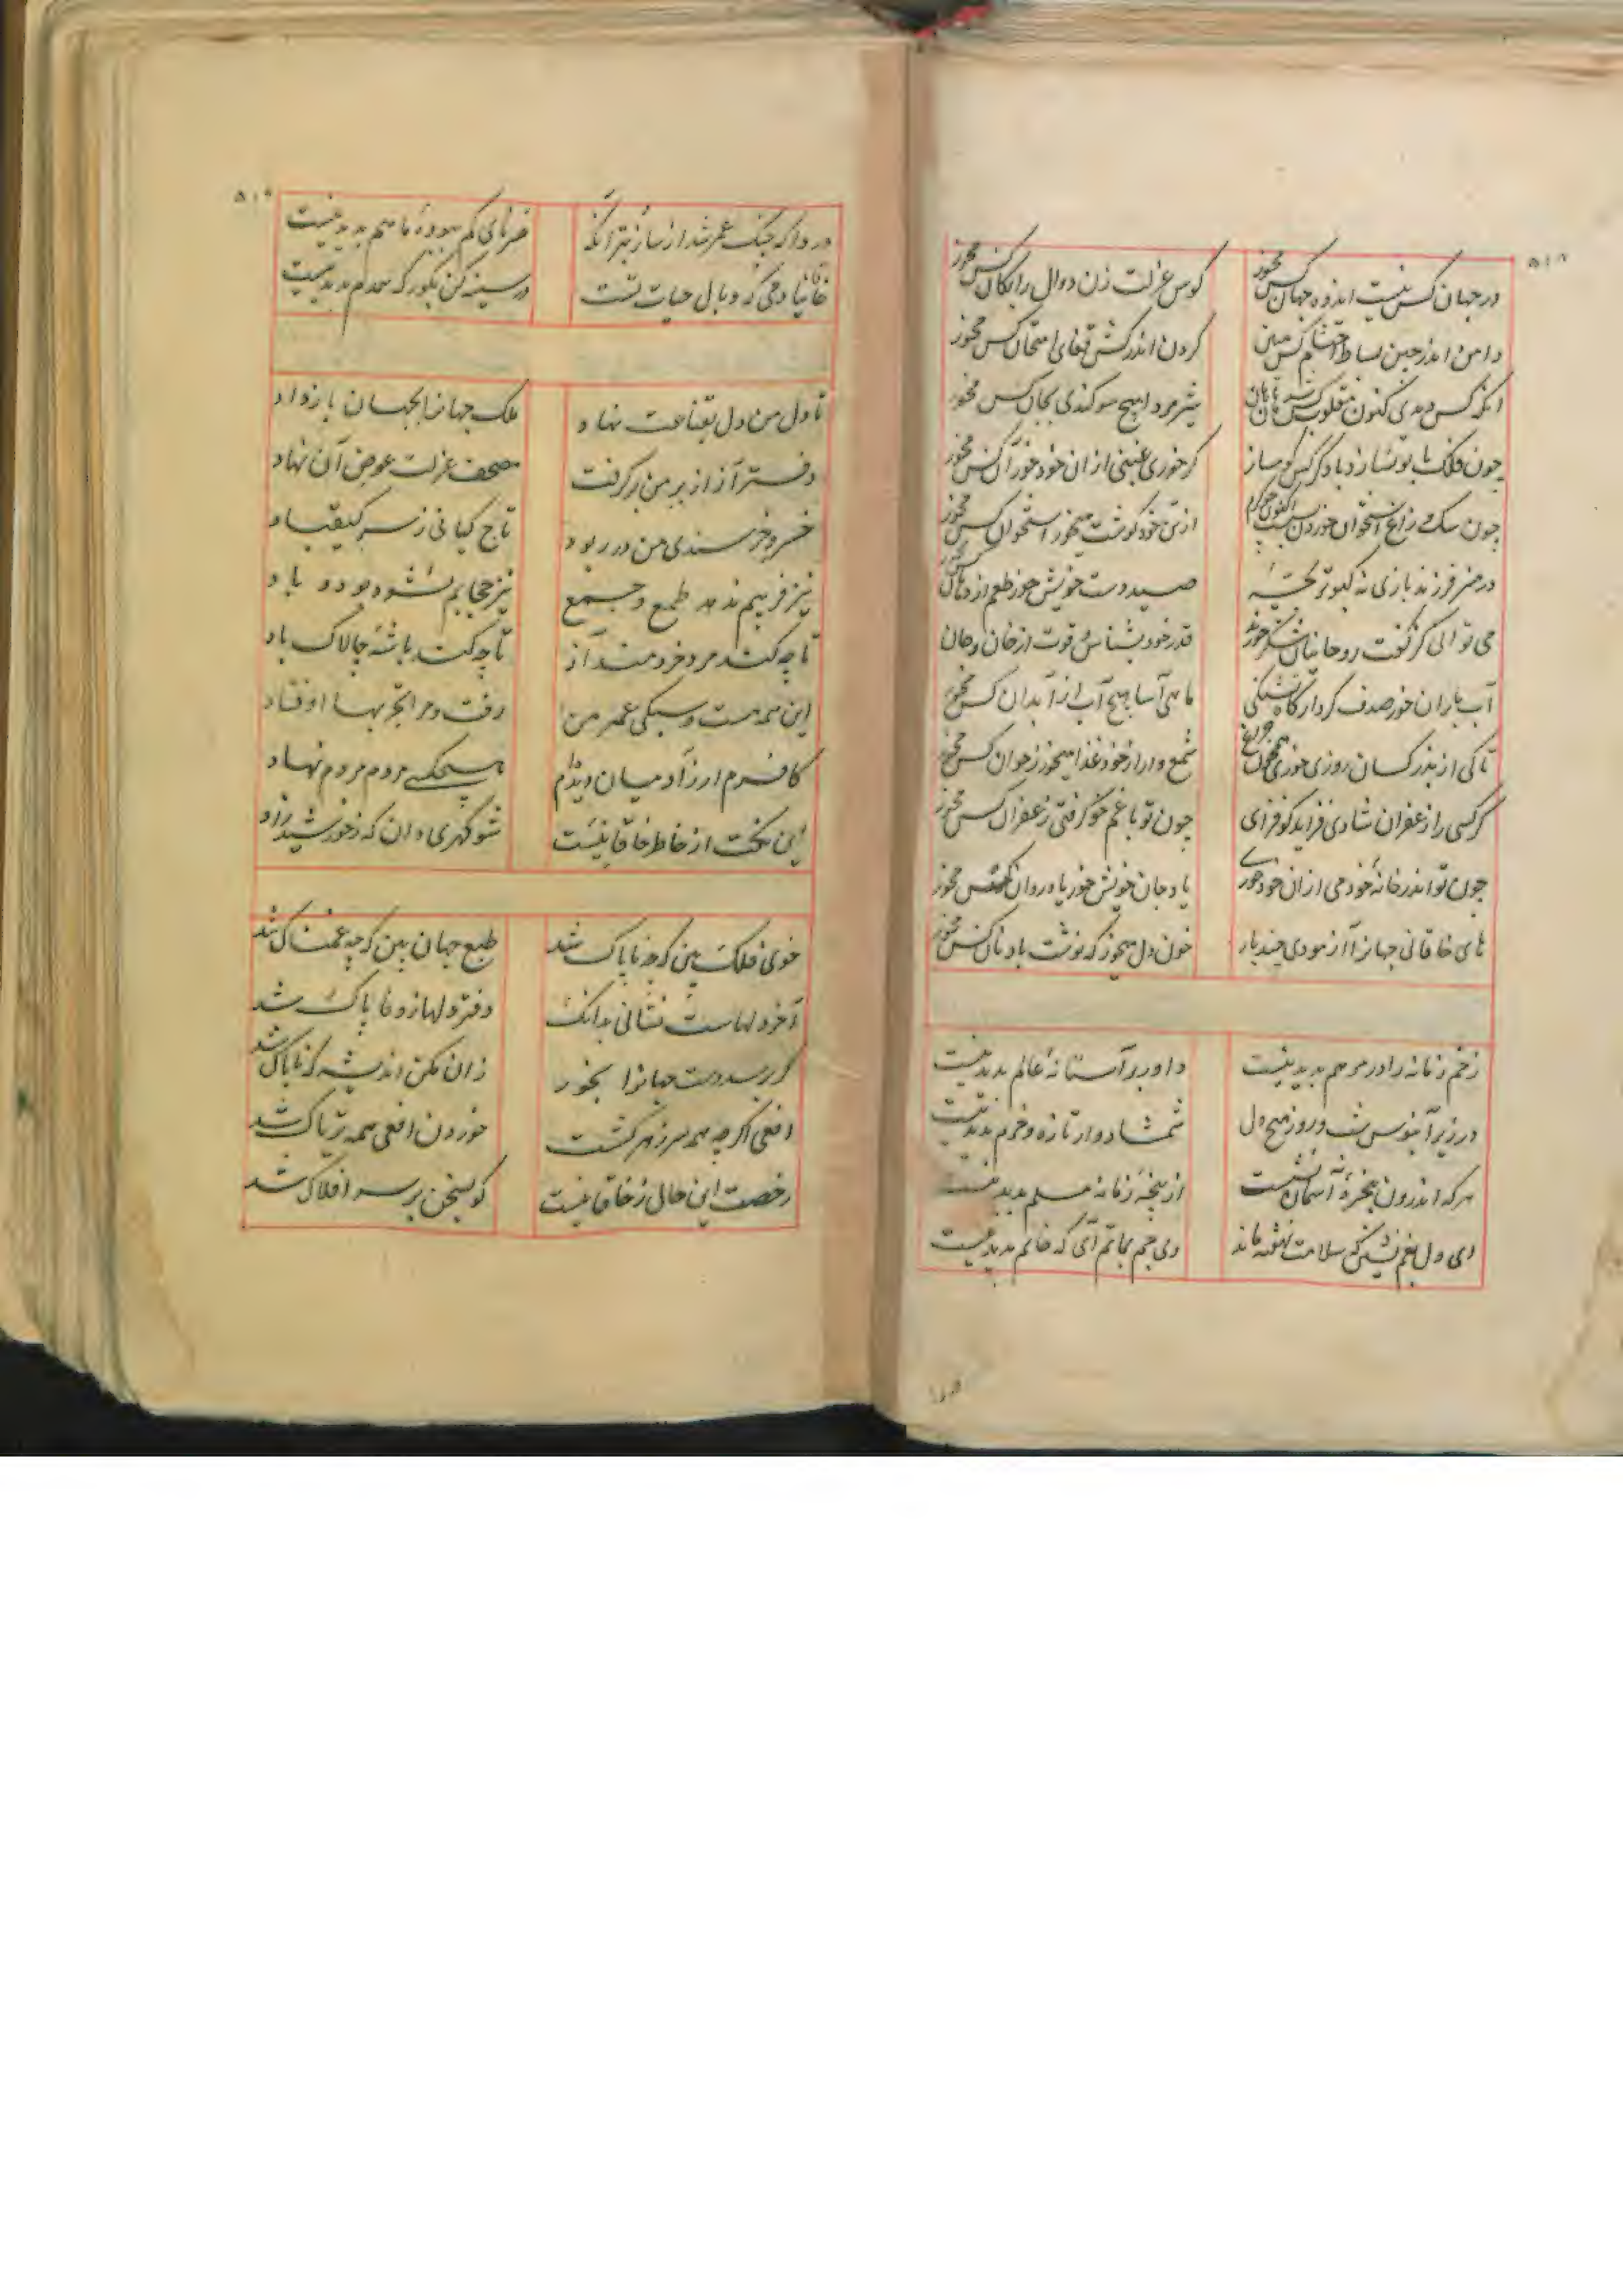 ۵۱۸
در جهان کس نیست اندوه جهان کس مخور
کوس عزلت زن دوال رایگان کس مخور
دامن اندر چین بساط احتشام کس مبین
گردن اندر کش قفای امتحان کس مخور
شیر مردا هیچ سوگندی بجان کس مخور
چون فلک با تو نسازد با دگر کس گو مساز
گر خوری غمی از ان خود خور آن کس مخور
چون سگ و زاغ استخوان خوردن
از تن خود گوشت میخور استخوان کس مخور
در هنر فرزند بازی نه کبوتر بچه
صید دست خویش خور طعم از دهان کس مخور
قدر خود بشناس قوت از خان و جان
آب باران خور صدف کردار گاه تشنگی
ماهی آسا هیچ آب از آبدان کس مخور
تا کی از بدر کسان روزی خوری
شمع وار از خود غذا میخور ز خوان کس مخور
گر کسی را زعفران شادی فزاید گو فزای
چون تو با غم خو گرفتی زعفران کس مخور
چون تو اندر خانه خود می از ان خود خوری
یاد جان خویش خور یاد روان کس مخور
های خاقانی جهانرا آزمودی چند بار
خون دل میخور که نوشت باد نان کس مخور
زخم زمانه را در مرهم پدید نیست
داور بر آستانه عالم پدید نیست
در زیر آبنوس شب و روز هیچ دل
شمشاد وار تازه و خرم پدید نیست
هر که اندرون پنجره آسمان نشست
از پنجه زمانه مسلم پدید نیست
ای دل بغم نشین که سلامت نهفته ماند
وی جم بماتم آی که خاتم پدید نیست
۵۱۹
دردا که چنگ عمر شد از ساز بتر آنکه
سرنای گم بوده ما هم پدید نیست
خاقانیا دمی که وبال حیات تست
در سینه کن بگور که همدم پدید نیست
تا دل من دل بقناعت نهاد
ملک جهانرا بجهان باز داد
دفتر آز از بر من برگرفت
مصحف عزلت عوض آن نهاد
خسرو خرسندی من در ربود
تاج کیانی ز سر کیقباد
نیز فریبم ندهد طمع و جمع
نیز حجابم نشود بود و باد
تا چه کند مرد خردمند آز
تا چه کند باشه چالاک باد
این همه هست و سبکی عمر من
رفت و مرا تجربها اوفتاد
کافرم ار زآدمیان دیده‌ام
هیچکسی مردم مردم نهاد
این نکت از خاطر خاقانیست
شو گهری دان که ز خورشید زاد
خوی فلک بین که چه ناپاک شد
طبع جهان بین که چه غمناک شد
آخر دلهاست نشانی بدانک
دفتر دلها ز وفا پاک شد
گر رسدت دست جهانرا بخور
زان مکن اندیشه که ناپاک شد
افعی اگر چه همه سر زهر گشت
خوردن افعی همه تریاک شد
رخصت این حال ز خاقانیست
کو بسخن بر سر افلاک شد